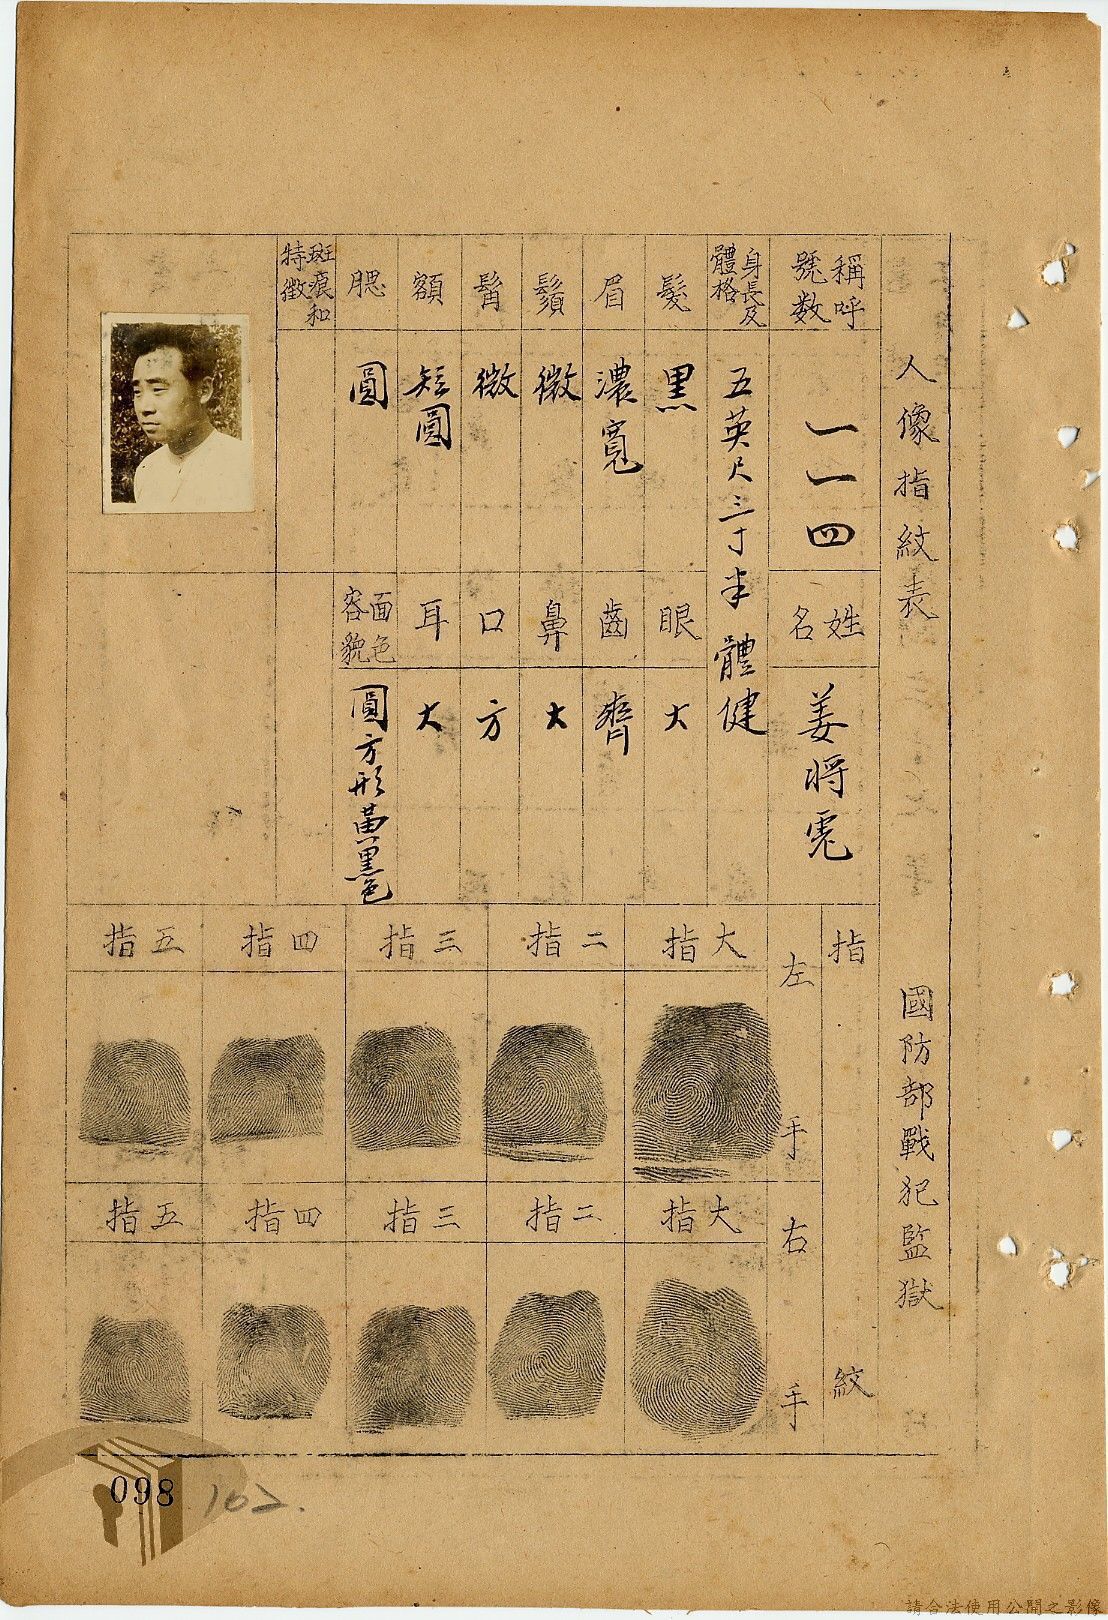 人像指紋表 國防部戰犯監獄
稱呼號数 一一四
姓名 姜将虎
身長及體格 五英尺三寸半 體健
髮 黑
眼 大
眉 濃寬
齒 齊
鬚 微
鼻 大
髯 微
口 方
額 短圓
耳 大
腮 圓
面色容貌 圓方形黃黑色
斑痕和特徵
指紋
左手
大指
二指
三指
四指
五指
右手
大指
二指
三指
四指
五指
098
167.
請合法使用公開之影像